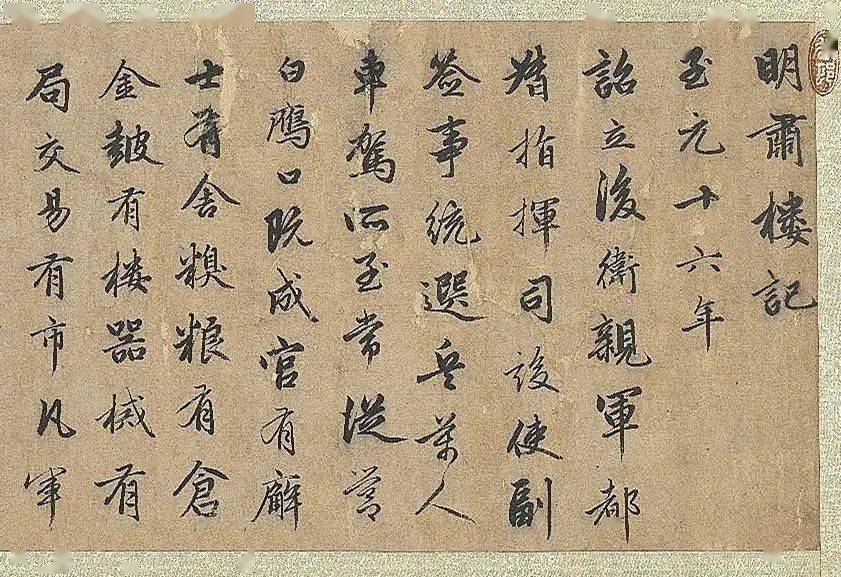 明肅樓記
至元十六年
詔立後衛親軍都
揩指揮司設使副
簽事統選兵萬人
車駕所至常從營
白鴈口既成官有廨
士有舍糗粮有倉
金皷有樓器械有
局交易有市凡軍